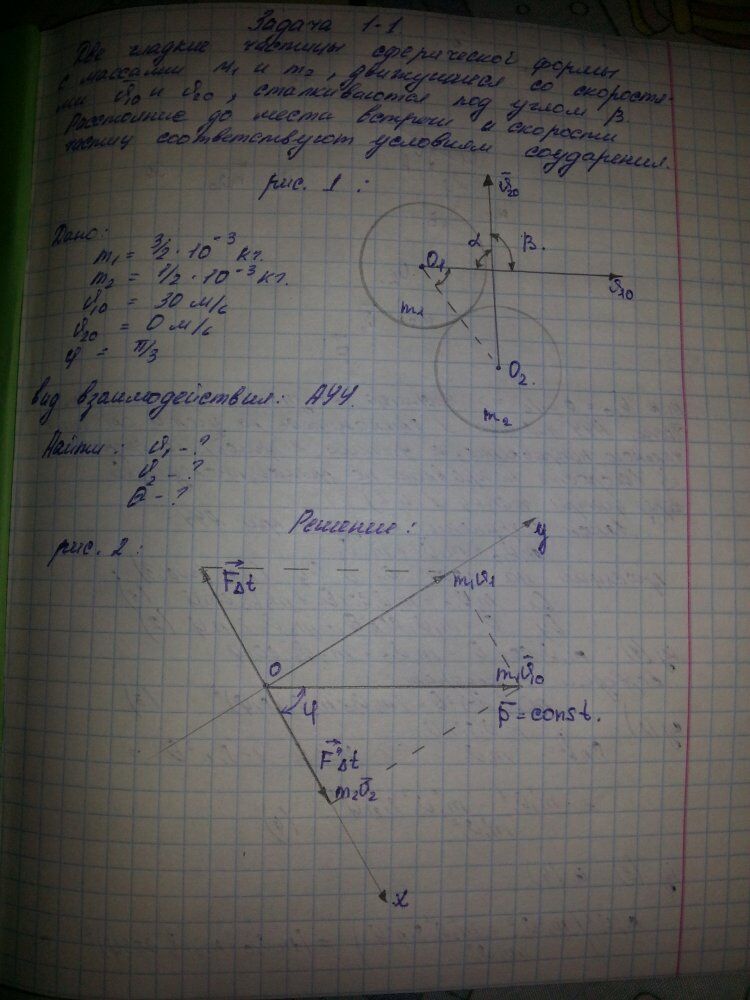 Задача 1-1
Две гладкие частицы сферической формы
с массами m₁ и m₂, движущиеся со скоростя-
ми ῡ₁₀ и ῡ₂₀, сталкиваются под углом β.
Расстояние до места встречи и скорости
частиц соответствуют условиям соударения.
рис. 1 :
ῡ₂₀
Дано:
m₁ = 3/2 · 10⁻³ кг.
α
β.
O₁
m₂ = 1/2 · 10⁻³ кг.
ῡ₁₀
υ₁₀ = 30 м/с
m₁
υ₂₀ = 0 м/с
φ = π/3
O₂.
вид взаимодействия: АУУ.
m₂
Найти: υ₁ - ?
υ₂ - ?
Q - ?
Решение:
рис. 2 :
y
F⃗Δt
m₁ῡ₁
O
m₁ῡ₁₀
φ
p̄ = const.
F⃗'Δt
m₂ῡ₂
x